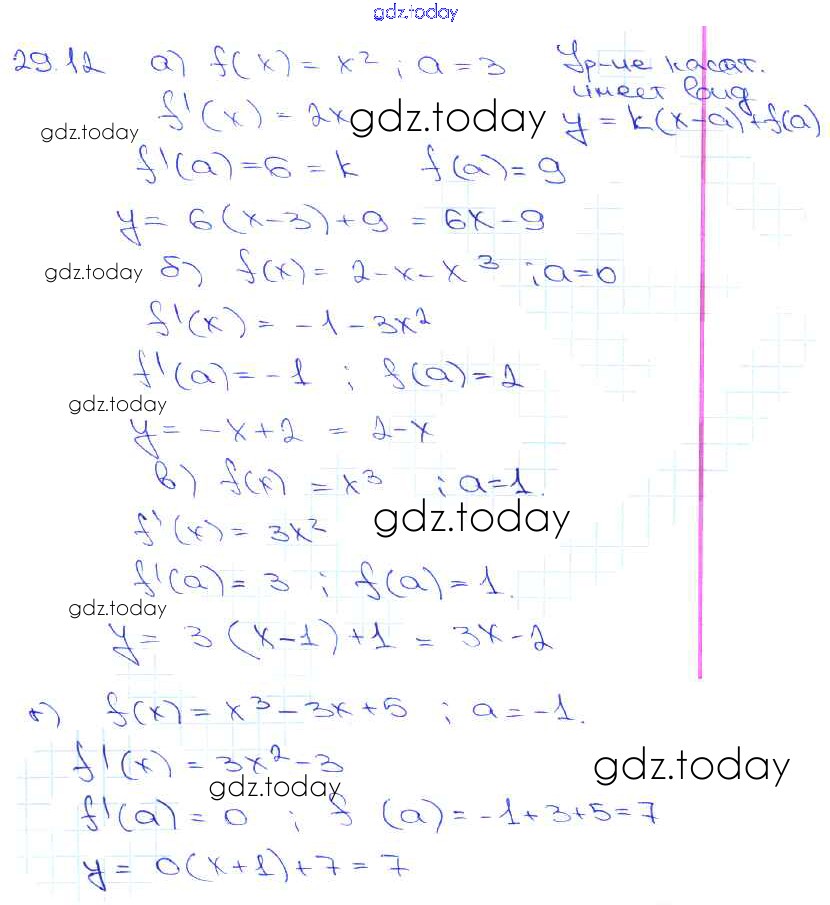 gdz.today
29.12 а) f(x) = x² ; a = 3 Ур-ие касат.
имеет вид
f'(x) = 2x gdz.today y = k(x-a)+f(a)
gdz.today
f'(a) = 6 = k f(a) = 9
y = 6(x-3)+9 = 6x-9
gdz.today б) f(x) = 2-x-x³ ; a=0
f'(x) = -1-3x²
f'(a) = -1 ; f(a) = 2
gdz.today
y = -x+2 = 2-x
в) f(x) = x³ ; a=1.
f'(x) = 3x² gdz.today
f'(a) = 3 ; f(a) = 1.
gdz.today
y = 3(x-1)+1 = 3x-2
г) f(x) = x³-3x+5 ; a = -1.
f'(x) = 3x²-3 gdz.today
gdz.today
f'(a) = 0 ; f (a) = -1+3+5=7
y = 0(x+1)+7=7